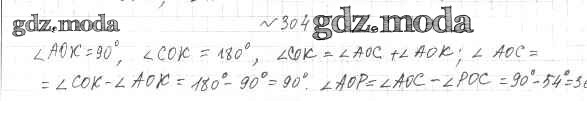 gdz.moda ~304 gdz.moda
∠AOK = 90°, ∠COK = 180°, ∠COK = ∠AOC + ∠AOK; ∠AOC =
= ∠COK - ∠AOK = 180° - 90° = 90°. ∠AOP = ∠AOC - ∠POC = 90° - 54° = 3